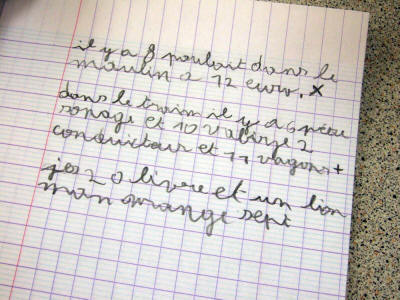 il y a 8 poulait dans le
moulin a 12 euro. x
dans le traim il y a 6 père
sonage et 10 valiqe 2
conducteur et 11 vagons +
je 20 livre et un lion
man mange sept